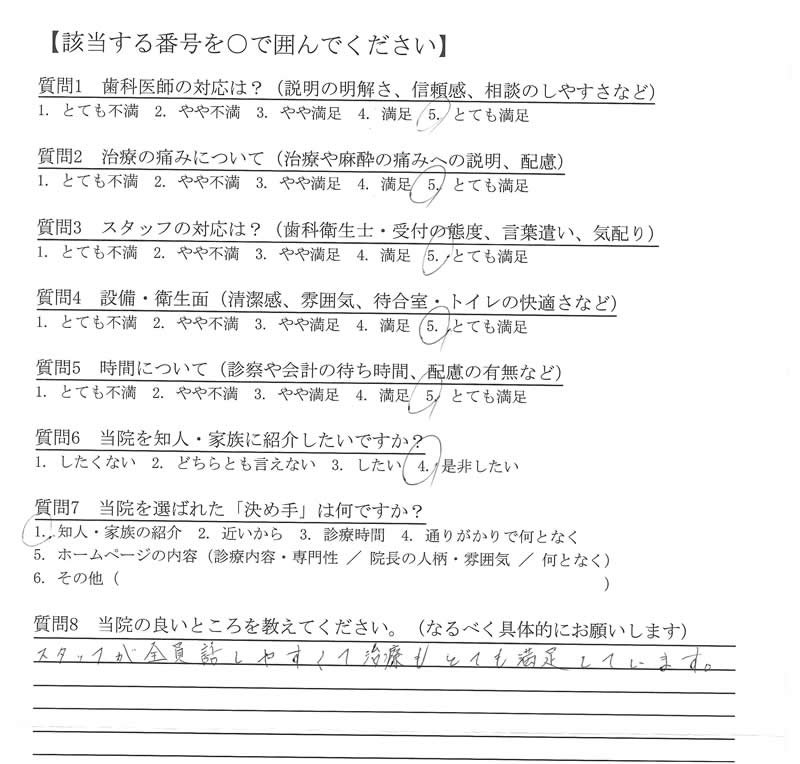 【該当する番号を○で囲んでください】
質問1 歯科医師の対応は？（説明の明解さ、信頼感、相談のしやすさなど）
1. とても不満 2. やや不満 3. やや満足 4. 満足 5. とても満足
質問2 治療の痛みについて（治療や麻酔の痛みへの説明、配慮）
1. とても不満 2. やや不満 3. やや満足 4. 満足 5. とても満足
質問3 スタッフの対応は？（歯科衛生士・受付の態度、言葉遣い、気配り）
1. とても不満 2. やや不満 3. やや満足 4. 満足 5. とても満足
質問4 設備・衛生面（清潔感、雰囲気、待合室・トイレの快適さなど）
1. とても不満 2. やや不満 3. やや満足 4. 満足 5. とても満足
質問5 時間について（診察や会計の待ち時間、配慮の有無など）
1. とても不満 2. やや不満 3. やや満足 4. 満足 5. とても満足
質問6 当院を知人・家族に紹介したいですか？
1. したくない 2. どちらとも言えない 3. したい 4. 是非したい
質問7 当院を選ばれた「決め手」は何ですか？
1. 知人・家族の紹介 2. 近いから 3. 診療時間 4. 通りがかりで何となく
5. ホームページの内容（診療内容・専門性 ／ 院長の人柄・雰囲気 ／ 何となく）
6. その他（ ）
質問8 当院の良いところを教えてください。（なるべく具体的にお願いします）
スタッフが全員話しやすくて治療もとても満足しています。